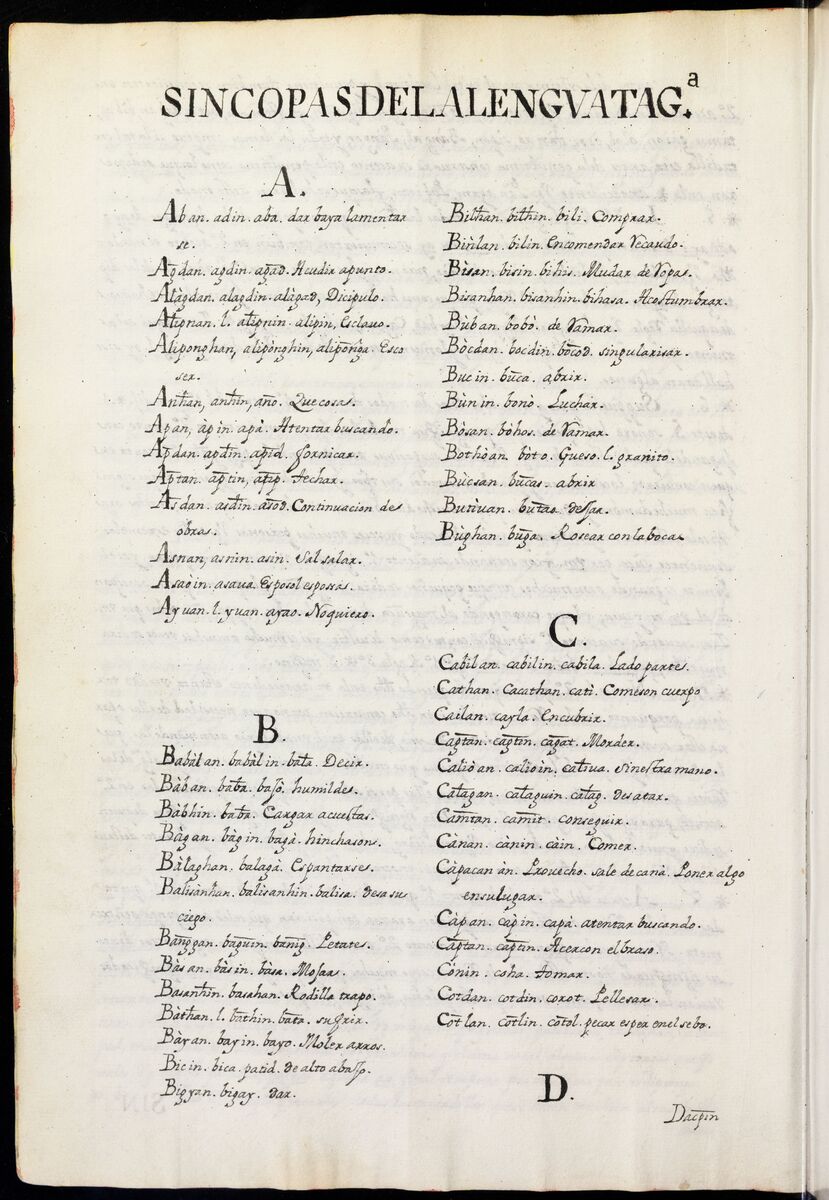 SINCOPAS DE LA LENGVA TAG.ª
A.
Aban. adin. aba. dar baya lamentar
se.
Agdan. agdin. agad. Acudir apunto.
Alàgdan. alagdin. alàgad, Diçipulo.
Alipnan. l. alipnin. alipin, Esclavo.
Aliponghan, alipònghin, alipònga. Esco
ser.
Anhan, anhin, año. Que cosas.
Apan, àpin. apà. Atentar buscando.
Apdan. apdin. apid. fornicar.
Aptan. aptin, atip. techar.
Asdan. asdin. asod. Continuacion de
obras.
Asnan, asnin. asin. Sal salar.
Asaòin. asaua. Esposo l esposas.
Ayuan. l. yuan. ayao. No quiero.
B.
Babàlan. babàlin. bala. Decir.
Bàban. baba. baſo. humildes.
Bàbhin. baba. Cargar acuestas.
Bàgan. bàgin. bagà. hinchasons.
Bàlaghan. balagà. Espantarse.
Balisànhan. balisanhin. balisa. desasu
ciego.
Banggan. baguin. banig. Petates.
Bàsan. bàsin. bàsa. Mojar.
Basanhin. basahan. Rodilla trapo.
Bàthan. l. bathin. bata. sufrir.
Bàyan. bayin. bayo. Moler arros.
Bicin. bica. patid. de alto abaſo.
Bigyan. bigay. dar.
Bilhan. bilhin. bili. Comprar.
Binlan. bilin. Encomendar recaudo.
Bìsan. bisin. bihis. Mudar de ropas.
Bisanhan. bisanhin. bihasa. Acostumbrar.
Bùban. bobò. deramar.
Bòcdan. bocdin. bocod. singularisar.
Bucin. buca. abrir.
Bùnin. bonò. Luchar.
Bòsan. bòhos. deramar.
Bothòan. bòto. Gueso. l. granito.
Bùcsan. bucas. abrir
Butiuan. butao. deſar.
Bùghan. buga. Rosear con la boca
C.
Cabilan. cabilin. cabila. Lado partes.
Cathan. Cacathan. cati. Comeson cuerpo
Cailan. cayla. Encubrir.
Cagtan. cagtin. cagat. Morder.
Caliòan. caliòin. caliua. sinestra mano.
Calagan. calaguin. calag. desatar.
Camtan. camit. conseguir.
Cànan. cànin. càin. Comer.
Càpacanàn. Provecho. sale de canà. Poner algo
ensulugar.
Càpan. càpin. capà. atentar buscando.
Captan. captin. Acercon el braso.
Cònin. coha. tomar.
Cotdan. cotdin. corot. Pellesar.
Cotlan. cotlin. cotol. pecar esper enel sebo.
D.
Dacpin